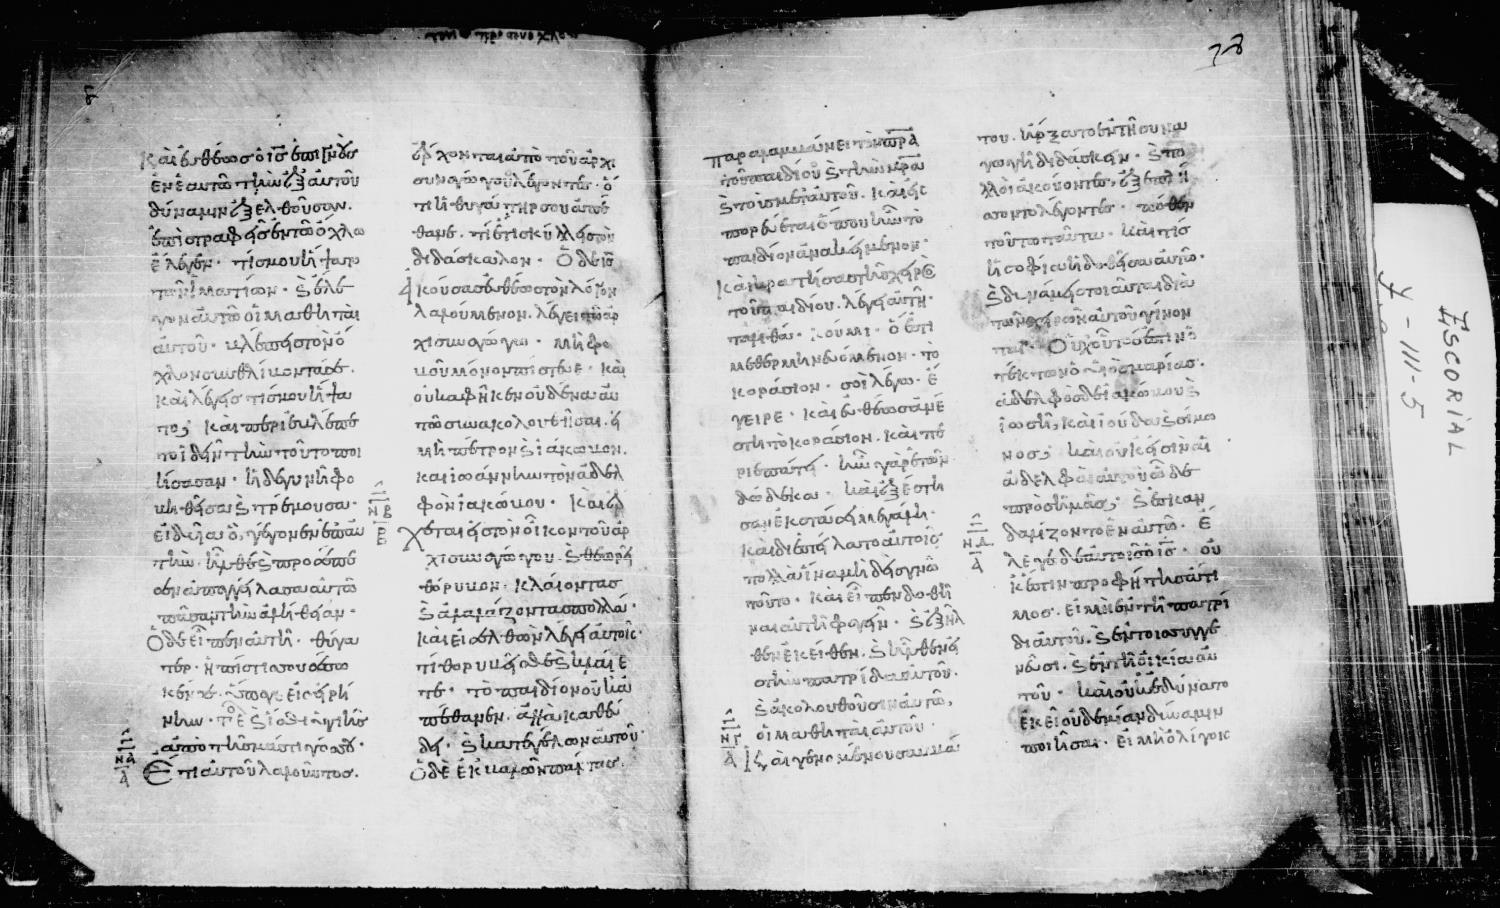 Καὶ εὐθέως ὁ ισ ἐπιγνοὺς
ἐν ἑαυτῶ τὴν ἐξ αὐτοῦ
δύναμιν ἐξελθοῦσαν.
ἐπιστραφεὶς ἐν τῶ ὄχλω
ἔλεγεν· τίς μου ἥψατο
τῶν ἱματίων· καὶ ἔλε
γον αὐτῶ οἱ μαθηταὶ
αὐτοῦ· βλέπεις τὸν ὄ
χλον συνθλίβοντά σε.
καὶ λέγεις τίς μου ἥψα
το; καὶ περιεβλέπε
το ἰδεῖν τὴν τοῦτο ποι
ήσασαν· ἡ δὲ γυνὴ φο
βηθεῖσα καὶ τρέμουσα·
εἰδυῖα ὃ γέγονεν ἐπ αὐ
τὴν· ἦλθε καὶ προσέπε
σεν αὐτῶ
πᾶσαν τὴν ἀλήθειαν·
Ὁ δὲ εἶπεν αὐτῆ· θύγα
τερ· ἡ πίστις σου σέσω
κέν σε· ὕπαγε εἰς εἰρή
νην· καὶ ἴσθι ὑγιὴς
ἀπὸ τῆς μάστιγός σου·
Ἔτι αὐτοῦ λαλοῦντος.
ἔρχονται ἀπὸ τοῦ ἀρχι
συναγώγου λέγοντες· ὅ
τι ἡ θυγάτηρ σου ἀπέ
θανε. τί ἔτι σκύλλεις τὸν
διδάσκαλον· Ὁ δὲ ισ
ἀκούσας εὐθέως τὸν λόγον
λαλούμενον. λέγει τῶ ἀρ
χισυναγώγω· μὴ φο
βοῦ μόνον πίστευε· καὶ
οὐκ ἀφῆκεν οὐδένα αὐ
τῶ συνακολουθῆσαι. εἰ
μὴ πέτρον καὶ ἰάκωβον.
καὶ ἰωάννην τὸν ἀδελ
φὸν ἰακώβου· Καὶ ἔρ
χεται εἰς τὸν οἶκον τοῦ ἀρ
χισυναγώγου. καὶ θεωρεῖ
θόρυβον· κλαίοντας
καὶ ἀλαλάζοντας πολλά·
καὶ εἰσελθὼν λέγει αὐτοῖς·
τί θορυβεῖσθε καὶ κλαίε
τε· τὸ παιδίον οὐκ ἀ
πέθανεν. ἀλλὰ καθεύ
δει· καὶ κατεγέλων αὐτοῦ·
Ὁ δὲ ἐκβαλὼν πάντας.
παραλαμβάνει τὸν πρα
τοῦ παιδίου καὶ τὴν μρα
καὶ τοὺς μετ αὐτοῦ. καὶ εἰσ
πορεύεται ὅπου ἦν τὸ
παιδίον ἀνακείμενον·
καὶ κρατήσας τῆς χειρὸς
τοῦ παιδίου. λέγει αὐτῆ·
ταλιθά· κούμι· ὅ ἐστι
μεθερμηνευόμενον· τὸ
κοράσιον· σοὶ λέγω· ἔ
γειρε· καὶ εὐθέως ἀνέ
στη τὸ κοράσιον. καὶ πε
ριεπάτει· ἦν γὰρ ἐτῶν
δώδεκα· καὶ ἐξέστη
σαν ἐκστάσει μεγάλη·
καὶ διεστείλατο αὐτοῖς
πολλὰ ἵνα μηδεὶς γνῶ
τοῦτο· καὶ εἶπεν δοθῆ
ναι αὐτῆ φαγεῖν· καὶ ἐξῆλ
θεν ἐκεῖθεν. καὶ ἦλθεν εἰς
τὴν πατρίδα αὐτοῦ.
καὶ ἀκολουθοῦσιν αὐτῶ,
οἱ μαθηταὶ αὐτοῦ·
Καὶ γενομένου σαββά
του. ἤρξατο ἐν τῆ συνα
γωγῆ διδάσκειν· καὶ πο
λλοὶ ἀκούοντες, ἐξεπλή
σσοντο λέγοντες· πόθεν
τούτω ταῦτα· καὶ τίς
ἡ σοφία ἡ δοθεῖσα αὐτῶ·
καὶ δυνάμεις τοιαῦται διὰ
τῶν χειρῶν αὐτοῦ γίνον
ται· Οὐχ οὗτός ἐστιν ὁ
τέκτων ὁ υἱὸς μαρίας·
ἀδελφὸς δὲ ἰακώβου καὶ
ἰωσῆ, καὶ ἰούδα καὶ σίμω
νος; καὶ οὐκ εἰσὶν αἱ
ἀδελφαὶ αὐτοῦ ὧδε
πρὸς ἡμᾶς; καὶ ἐσκαν
δαλίζοντο ἐν αὐτῶ· Ἔ
λεγε δὲ αὐτοῖς ὁ ισ· οὐ
κ ἔστιν προφήτης ἄτι
μος. εἰ μὴ ἐν τῆ πατρί
δι αὐτοῦ. καὶ ἐν τοῖς συγγε
νέσι. καὶ ἐν τῆ οἰκία αὐ
τοῦ· καὶ οὐκ ἐδύνατο
ἐκεῖ οὐδεμίαν δύναμιν
ποιῆσαι· εἰ μὴ ὀλίγοις
ESCORIAL
Ψ-III-5